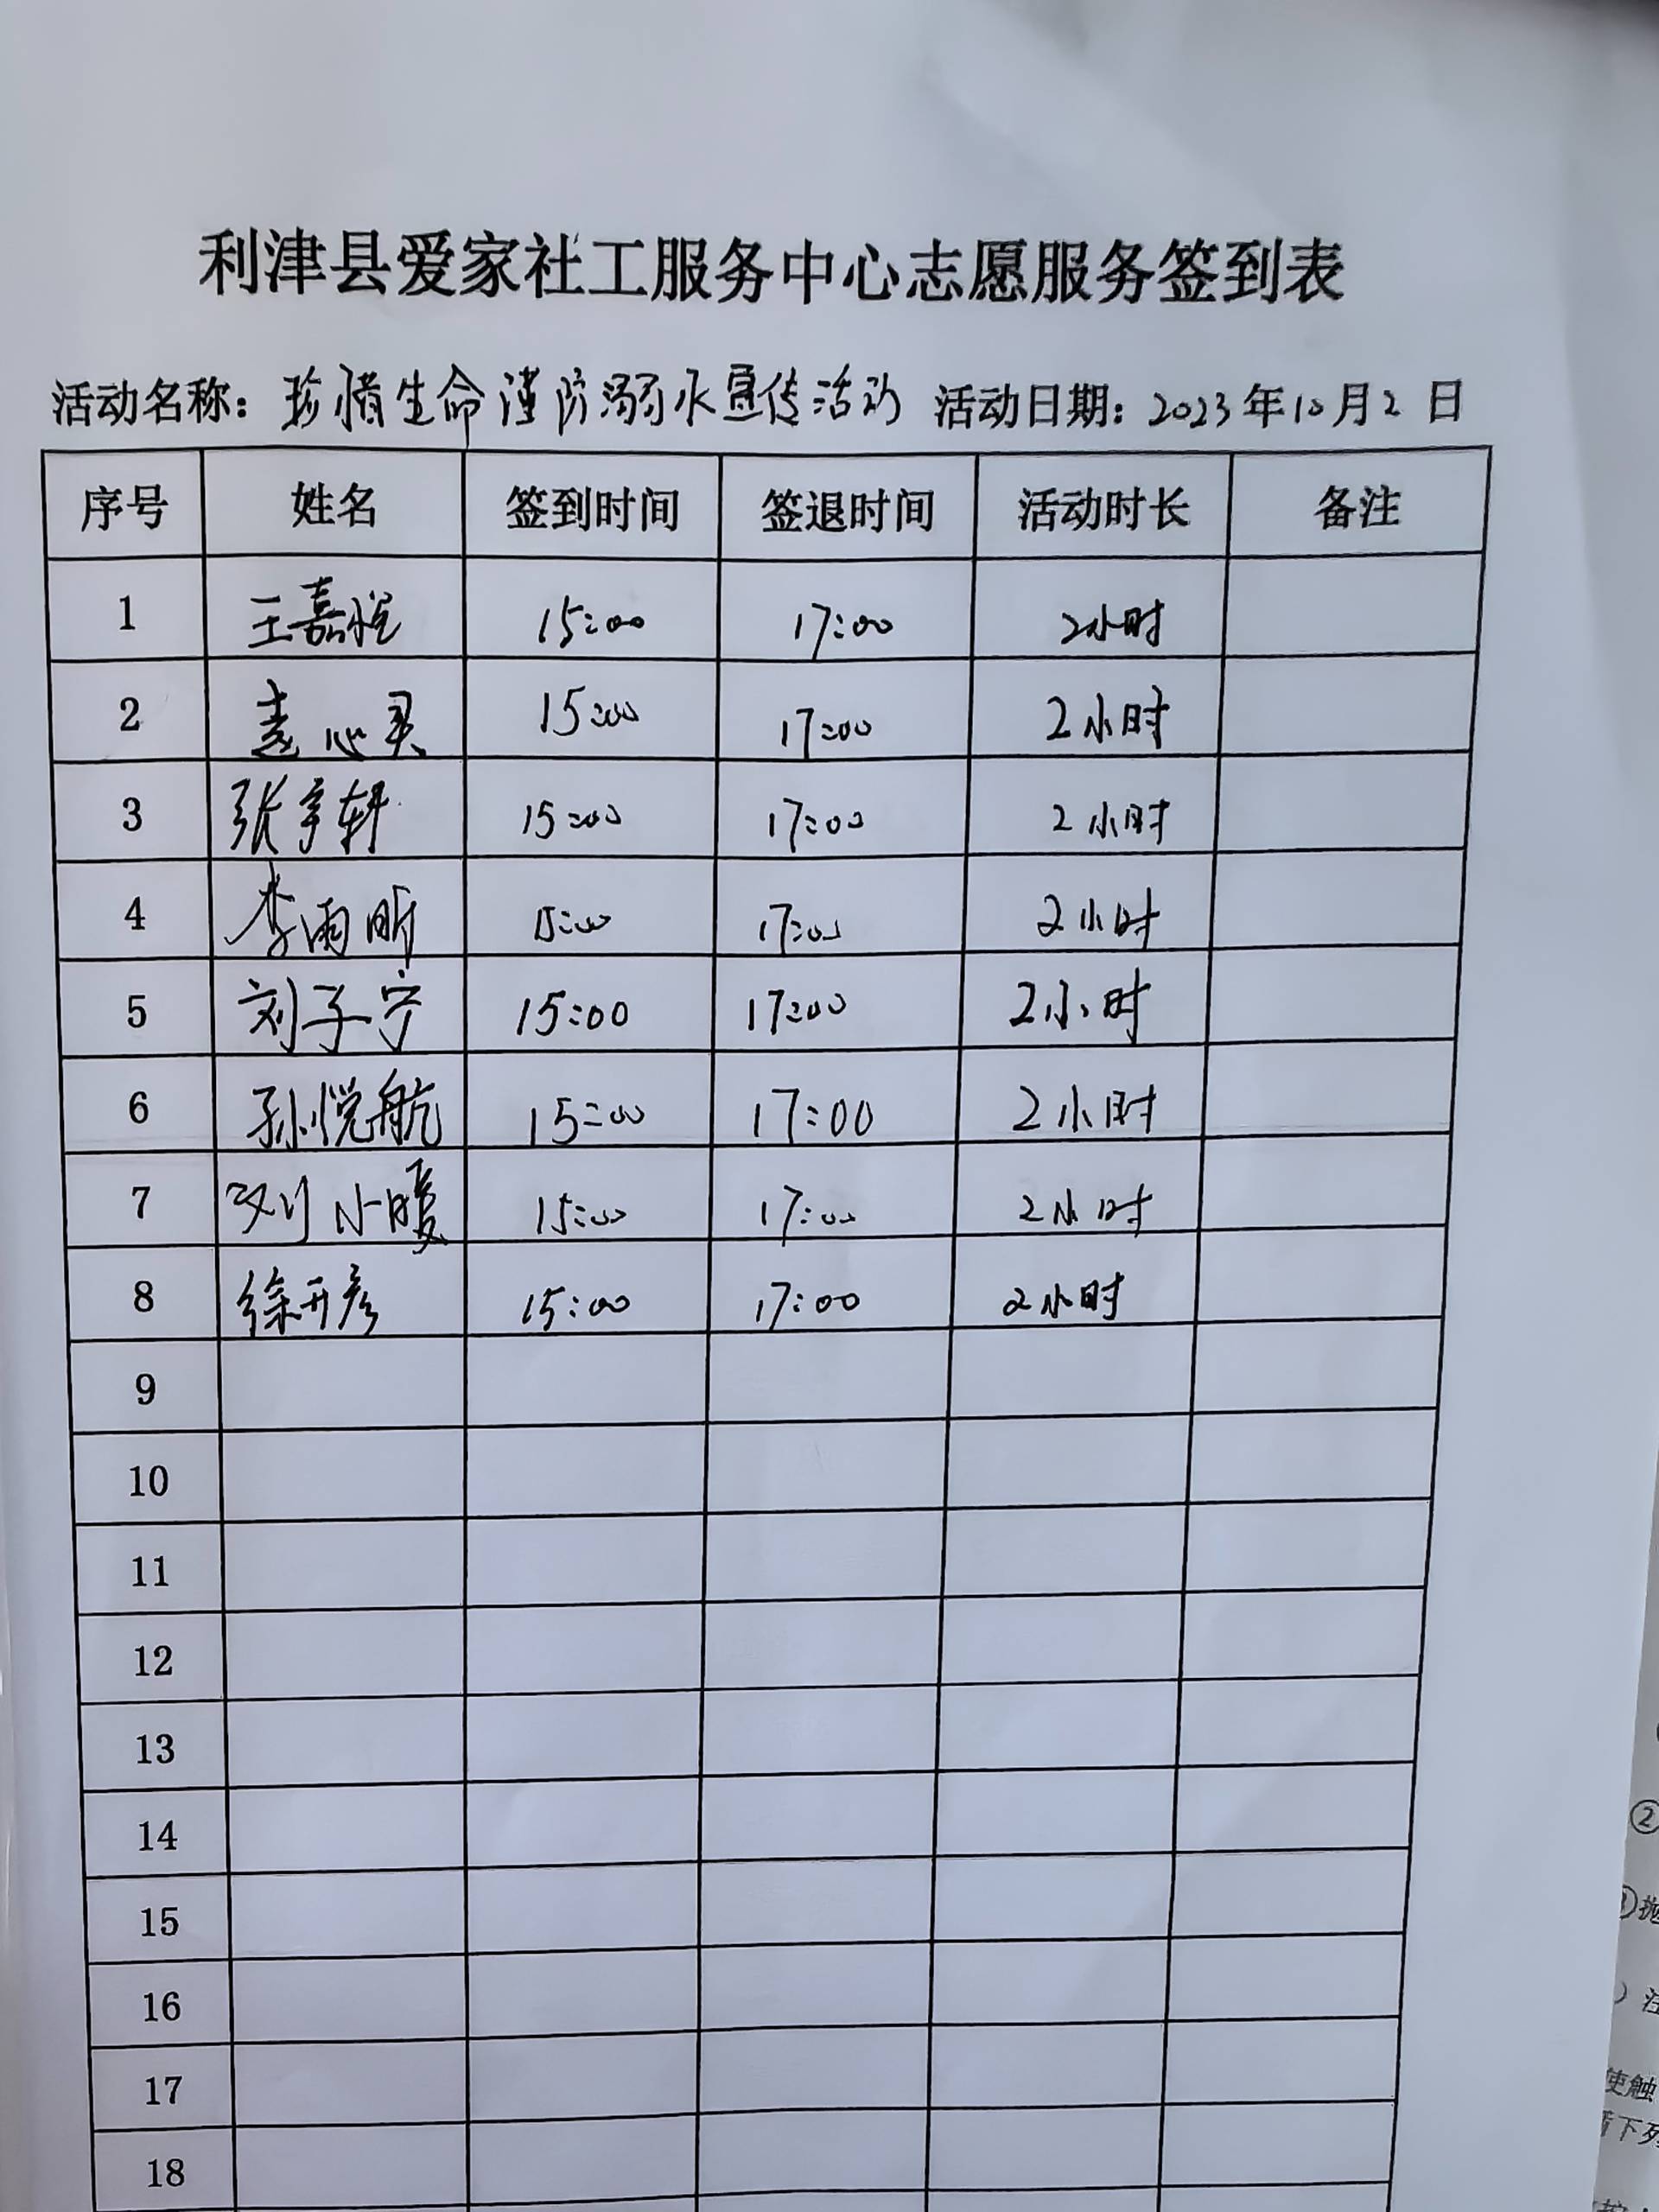 利津县爱家社工服务中心志愿服务签到表
活动名称：珍惜生命谨防溺水宣传活动 活动日期：2023年10月2日
序号 姓名 签到时间 签退时间 活动时长 备注
1 王嘉悦 15:00 17:00 2小时
2 袁心灵 15:00 17:00 2小时
3 张宇轩 15:00 17:00 2小时
4 李雨昕 15:00 17:00 2小时
5 刘子宁 15:00 17:00 2小时
6 孙悦航 15:00 17:00 2小时
7 刘小暖 15:00 17:00 2小时
8 徐开彦 15:00 17:00 2小时
9
10
11
12
13
14
15
16
17
18
②
抛
）注
使触
下列